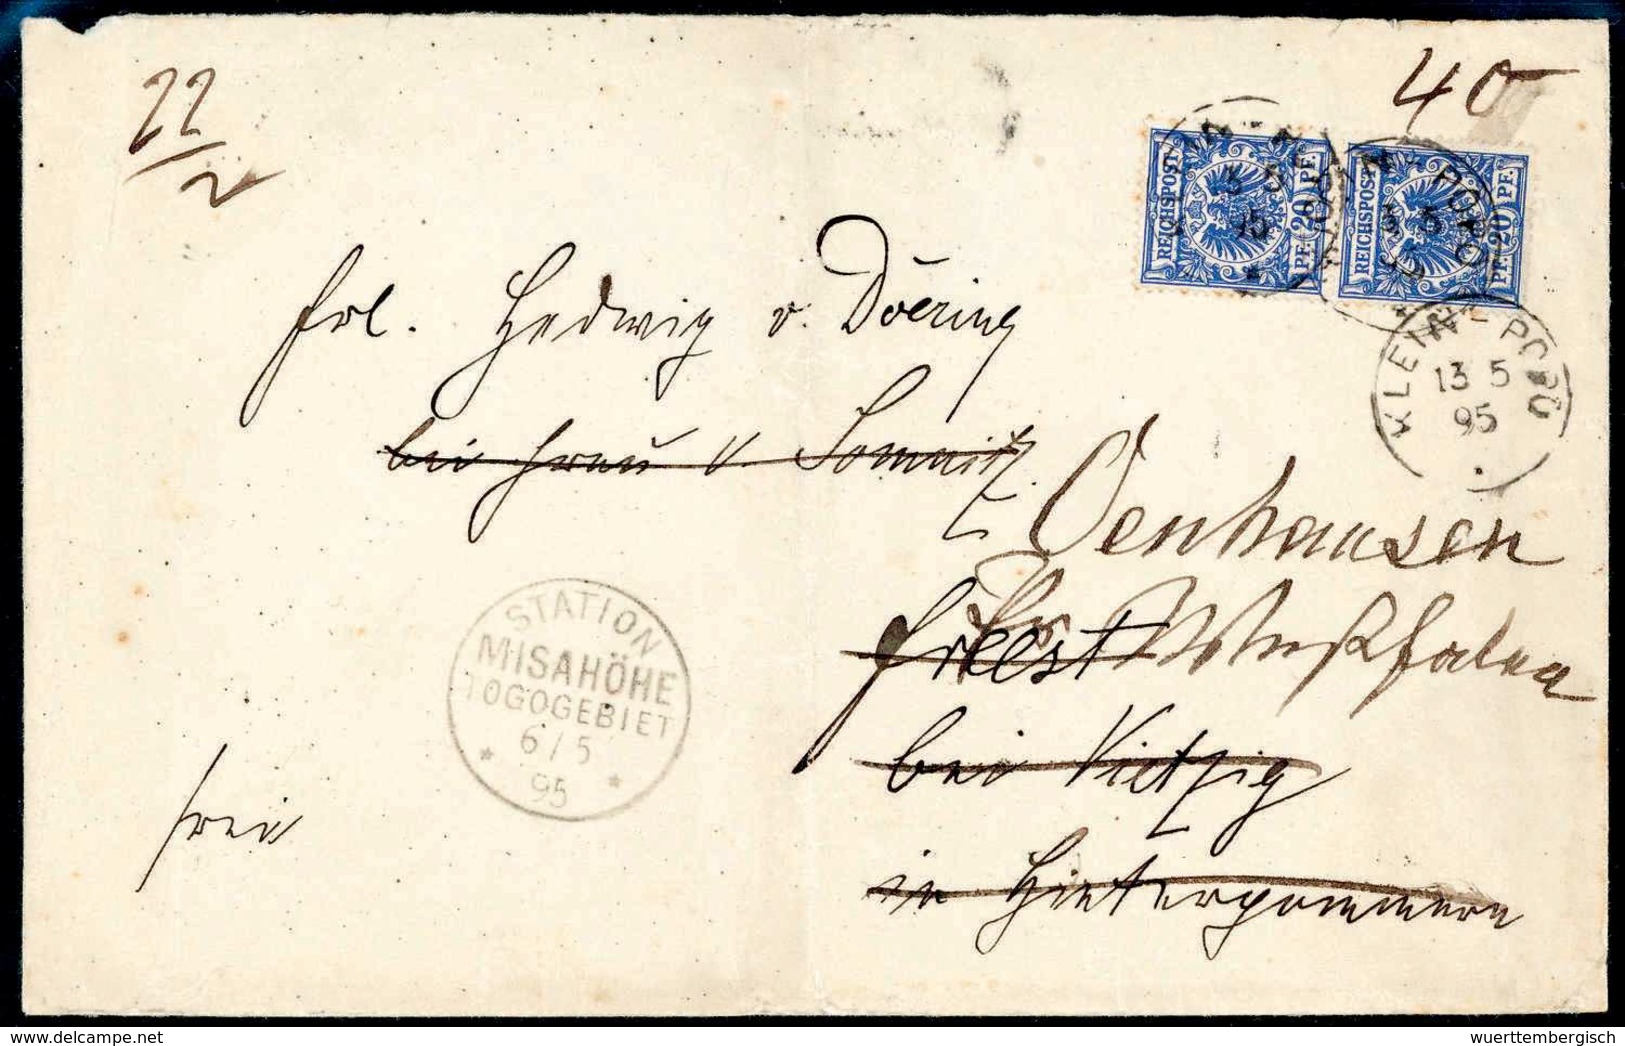 22/2
40
REICHSPOST 20 PF. PF.
REICHSPOST 20 PF. PF.
KLEIN-POPO
13 5
95
Frl. Hedwig v. Doering
bei Frau v. Somnitz
Oenhausen
Freest Westfalen
bei Vietzig
in Hinterpommern
STATION
MISAHÖHE
TOGOGEBIET
6/5
95
frei
wuerttembergisch